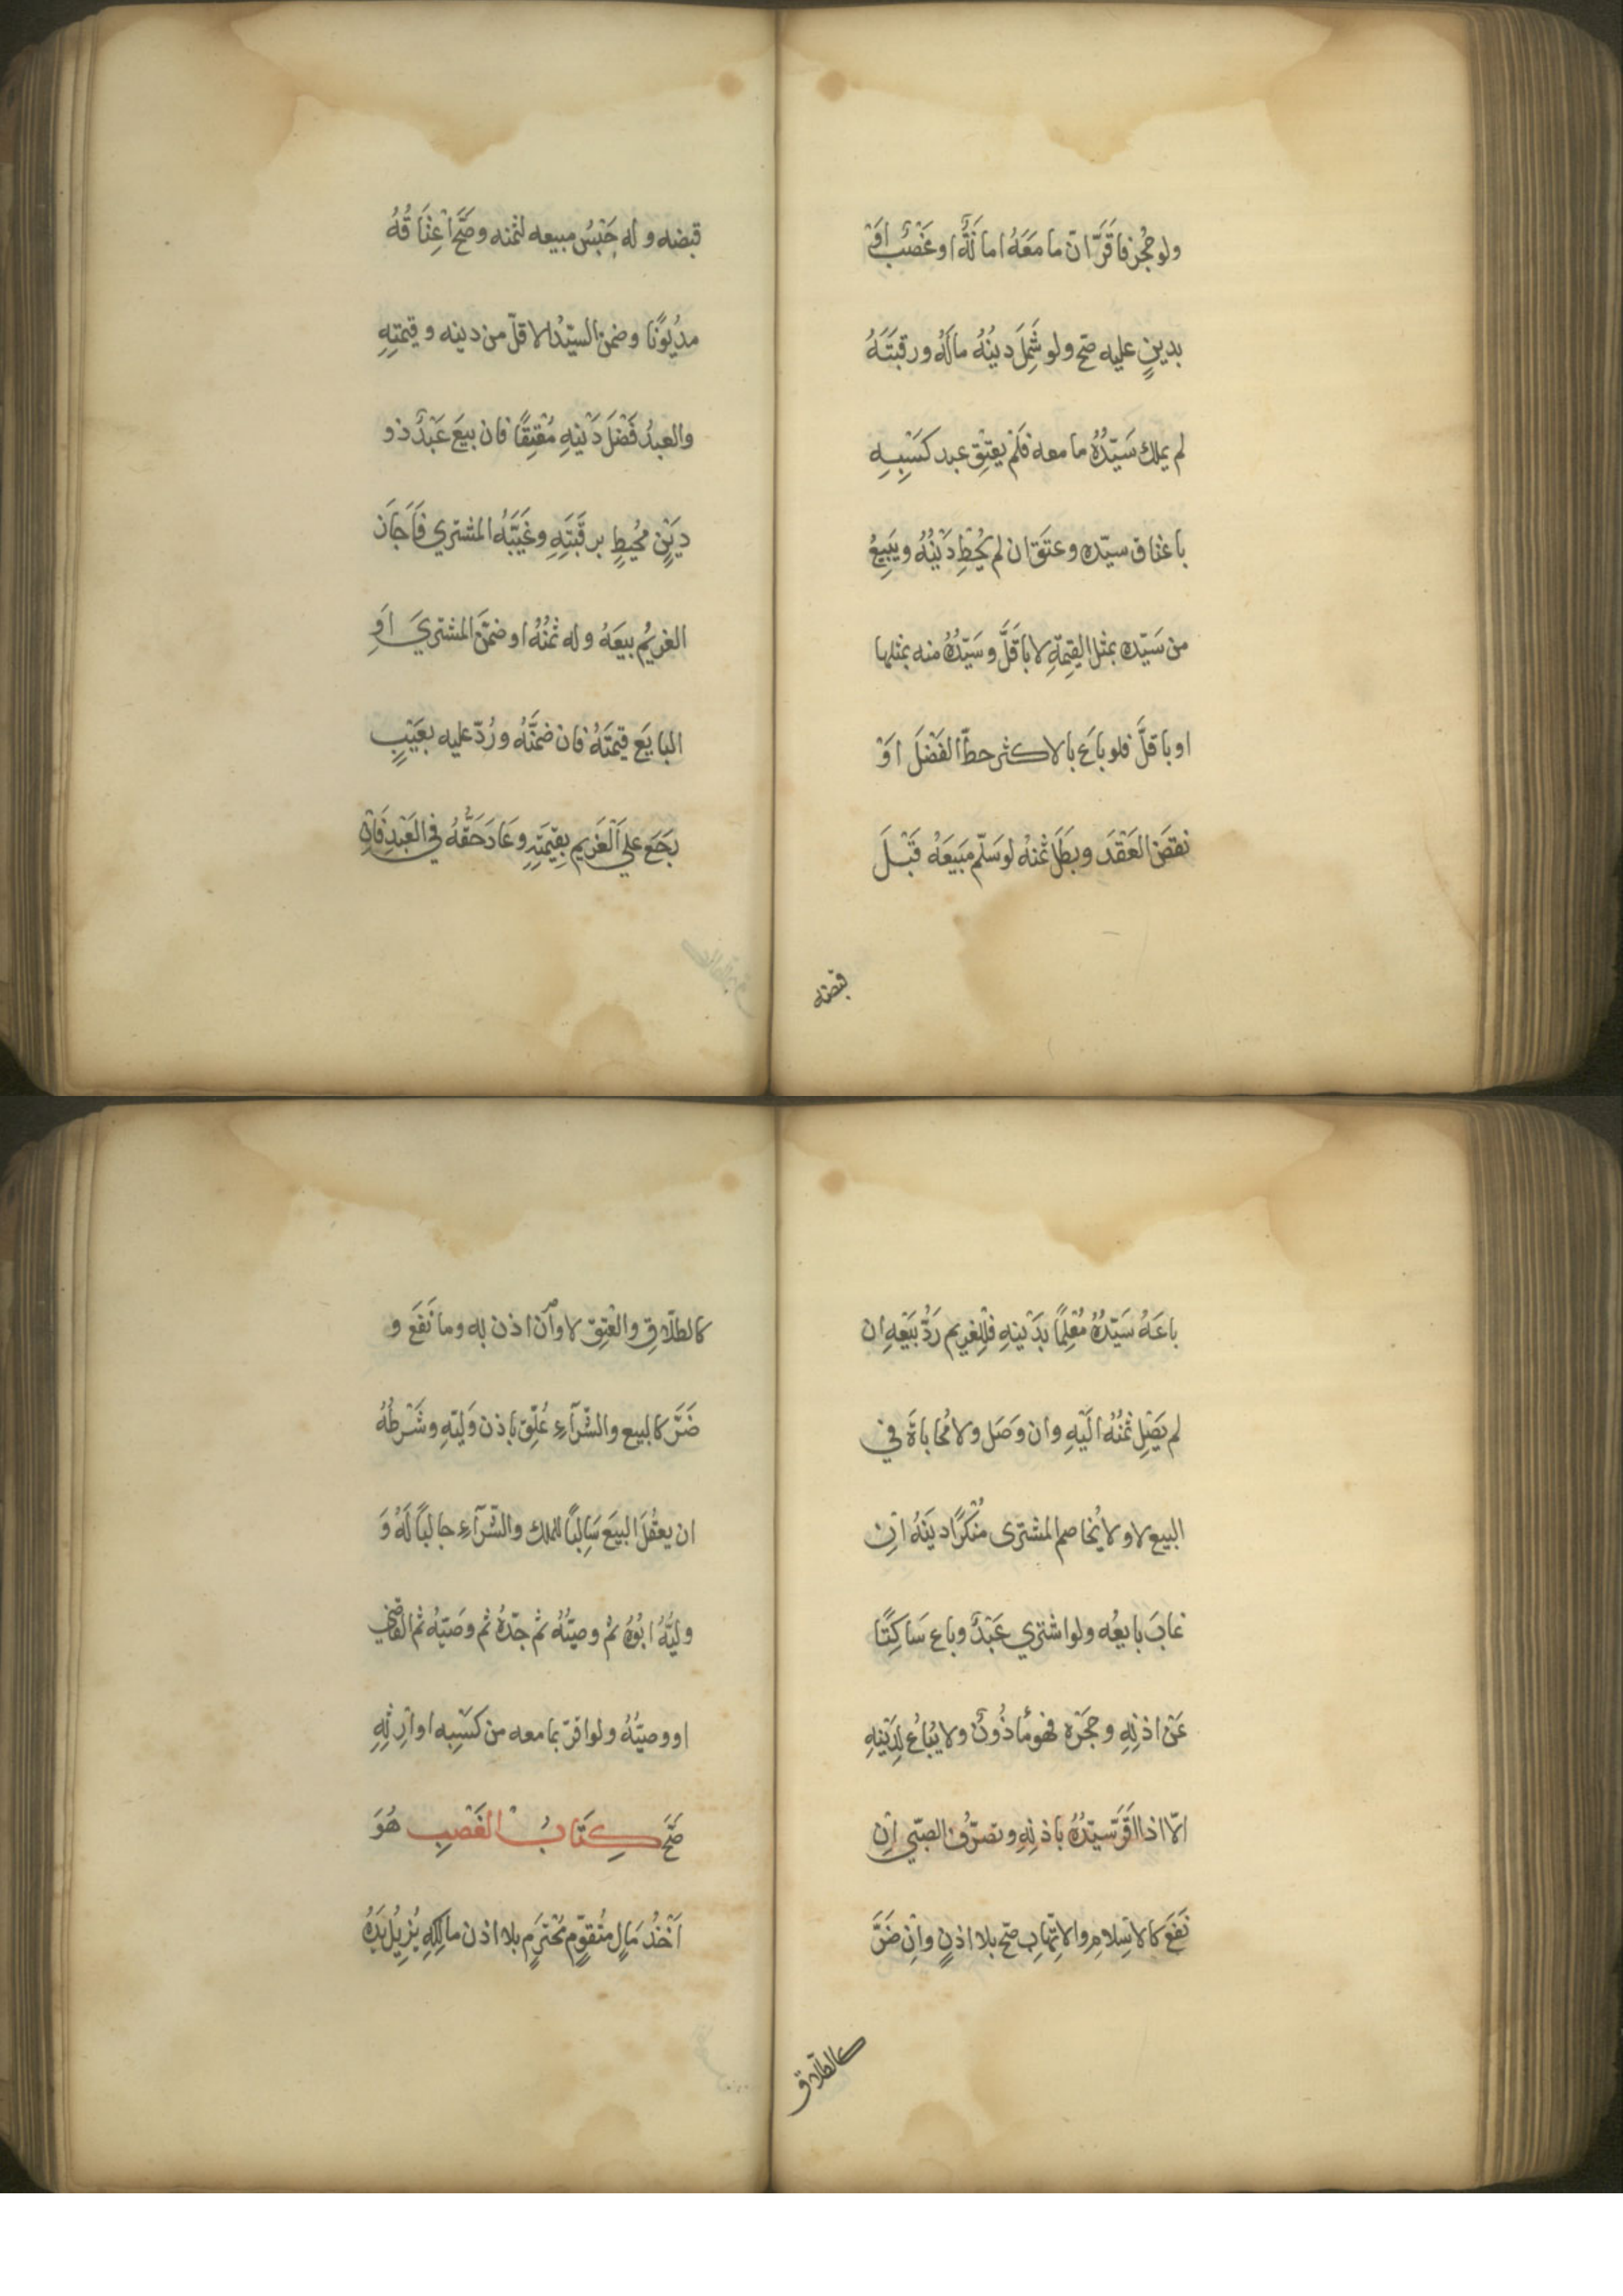 ولو حُجِرَ فَاَقَرَّ انّ ما مَعَهُ امانَةٌ او غَصْبٌ اَوْ
بدينٍ عليه صَحّ ولو شَمِلَ دينُهُ مالَهُ ورقبَتَهُ
لم يملك سَيّدُهُ ما معه فلَمْ يعتِقْ عبد كَسْبِهِ
باعتاق سيّده وعتَقَ ان لم يُحِطْ دَيْنُهُ ويَبِيعُ
من سَيّده بمثل القِيمَةِ لا بِاَقَلَّ وسَيّدُهُ منه بمثلها
او باقلَّ فلو باعَ بالاكثر حطّ الفَضْلَ اوْ
نقضَ العَقْدَ وبَطَلَ ثمنهُ لو سَلّم مَبيعَهُ قَبْلَ
قبضه
قبضه وله حَبْسُ مبيعه لثمنه وصَحَّ اعِتَاقُهُ
مديُونًا وضمنَ السيّدُ الاقلّ من دينه وقيمتِهِ
والعبدُ فَضْلَ دَيْنِهِ مُعْتِقًا فان بيعَ عَبْدٌ ذو
دَيْنٍ مُحيطٍ برقَبَتِهِ وغَيَّبَهُ المشتري فَاَجَازَ
الغريمُ بيعَهُ وله ثمنُهُ او ضمّنَ المشتريَ اَوِ
البايعَ قيمَتَهُ فان ضمَّنَهُ ورُدّ عليه بعَيْبٍ
رجَعَ على الغَريم بقِيمَتِهِ وعَادَ حَقُّهُ في العَبْدِ فَاِنْ
باعَهُ سَيّدُهُ مُعْلِمًا بدَيْنِهِ فللِغريم رَدُّ بَيْعِهِ ان
لم يَصِلْ ثمنُهُ اليْهِ وان وَصَل ولا مُحاباةَ في
البيع لا ولا يُخاصم المشترى مُنْكِرًا دينَهُ اِنْ
غابَ بايعُه ولو اشتري عَبْدٌ وباع سَاكِتًا
عَنْ اذنِهِ وحجَرْه فهو مأذُونٌ ولا يُباعُ لِدَيْنِهِ
الّا اذا اقَرَّ سيّدُهُ باذنِهِ وتصرّف الصبّي اِنْ
نَفَعَ كالاسلام والاتِّهابِ صَحّ بلا اذنٍ واِن ضَرَّ
كالطلاق
كالطلاقِ والعتِقِ لا وان اذن به وما نَفَعَ و
ضَرَّ كالبيع والشّرآءِ عُلّقَ باِذن وَليّهِ وشَرْطُهُ
ان يعقُلَ البيعَ سَالِبًا للملك والشّرآءِ جالبًا لَهُ وَ
وليّهُ ابُوُهُ ثم وصيّهُ ثم جَدّهُ ثم وصَيّهُ ثم القاضي
او وصيّهُ ولو اقرّ بما معه من كَسْبِه او اِرثِهِ
صَحّ كِتَابُ الغَصْبِ هُوَ
اَخْذُ مَالٍ مُتقوّمٍ مُحْتَرَمٍ بلا اذن مالكِهِ يُزيلُ يَدَهُ